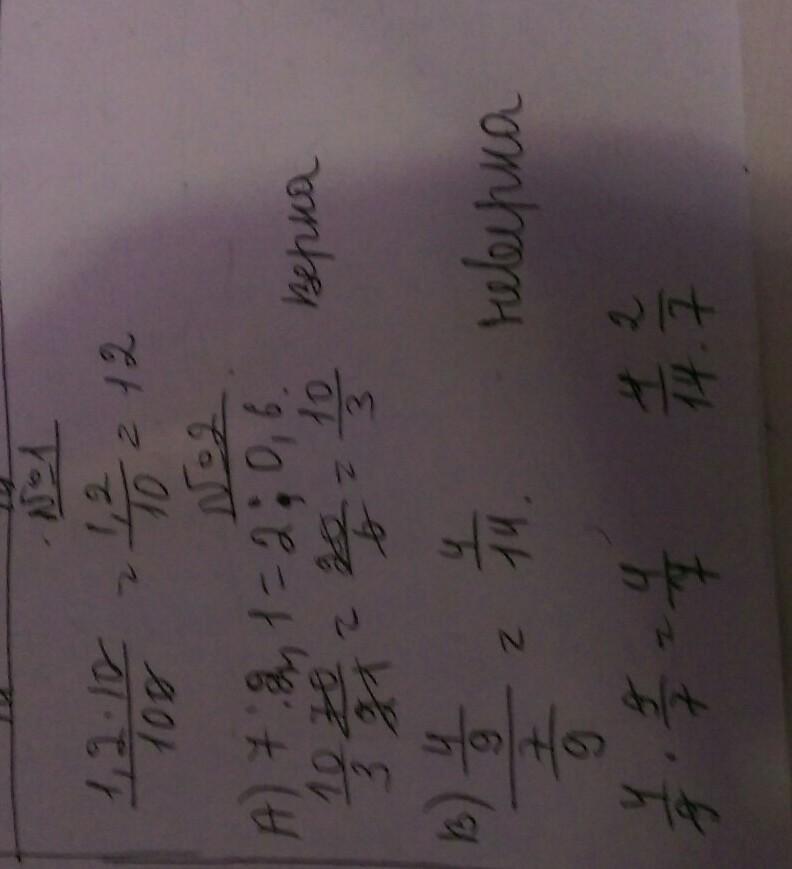 №1
1,2·10/100 = 1,2/10 = 12
№2
А) 7:2,1 = 2:0,6.
10/3 70/21 = 20/6 = 10/3 верна
В) 4/9 / 7/9 = 4/14. неверна
4/9 · 9/7 = 4/7 4/14 · 2/7